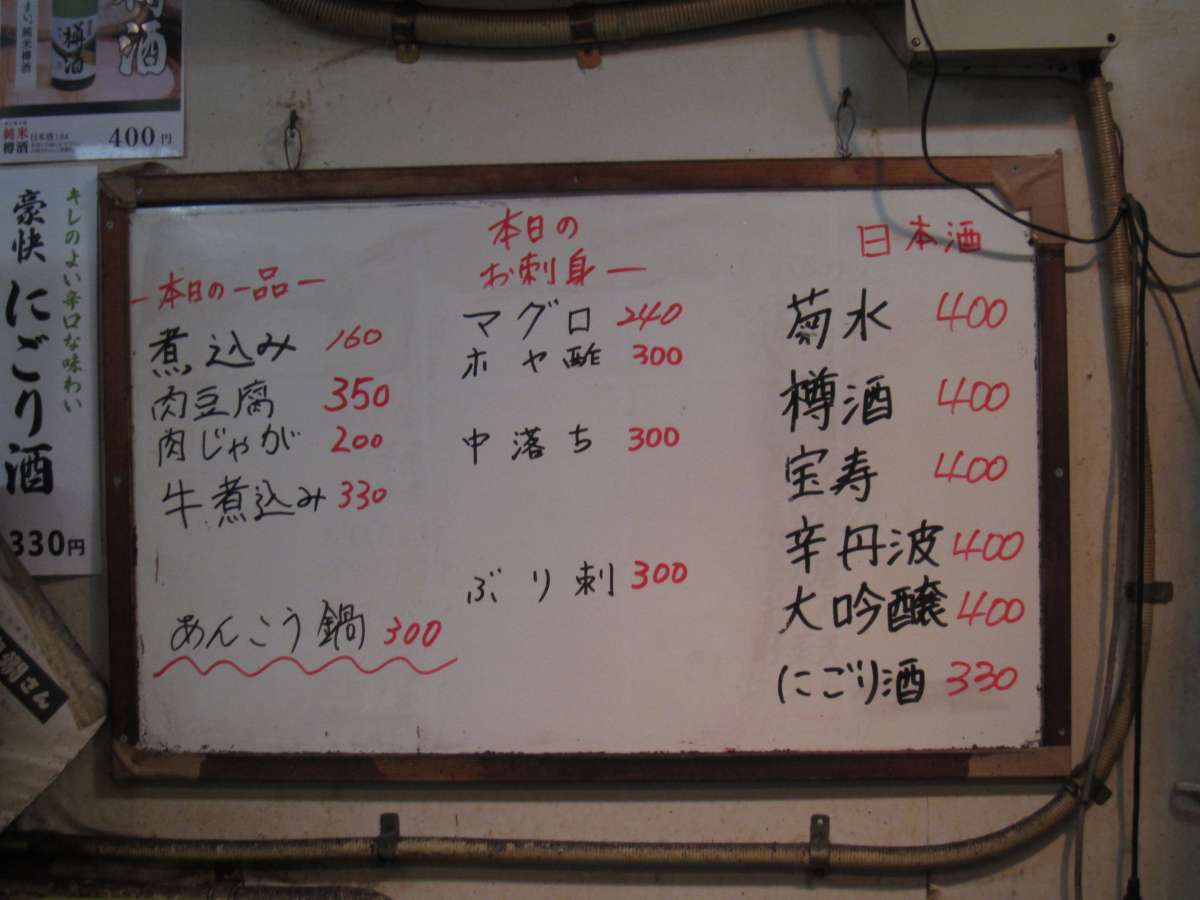 樽酒
純米
樽酒
400円
キレのよい辛口な味わい
豪快にごり酒
330円
ー本日の一品ー
煮込み 160
肉豆腐 350
肉じゃが 200
牛煮込み 330
あんこう鍋 300
本日の
お刺身ー
マグロ 240
ホヤ酢 300
中落ち 300
ぶり刺 300
日本酒
菊水 400
樽酒 400
宝寿 400
辛丹波 400
大吟醸 400
にごり酒 330